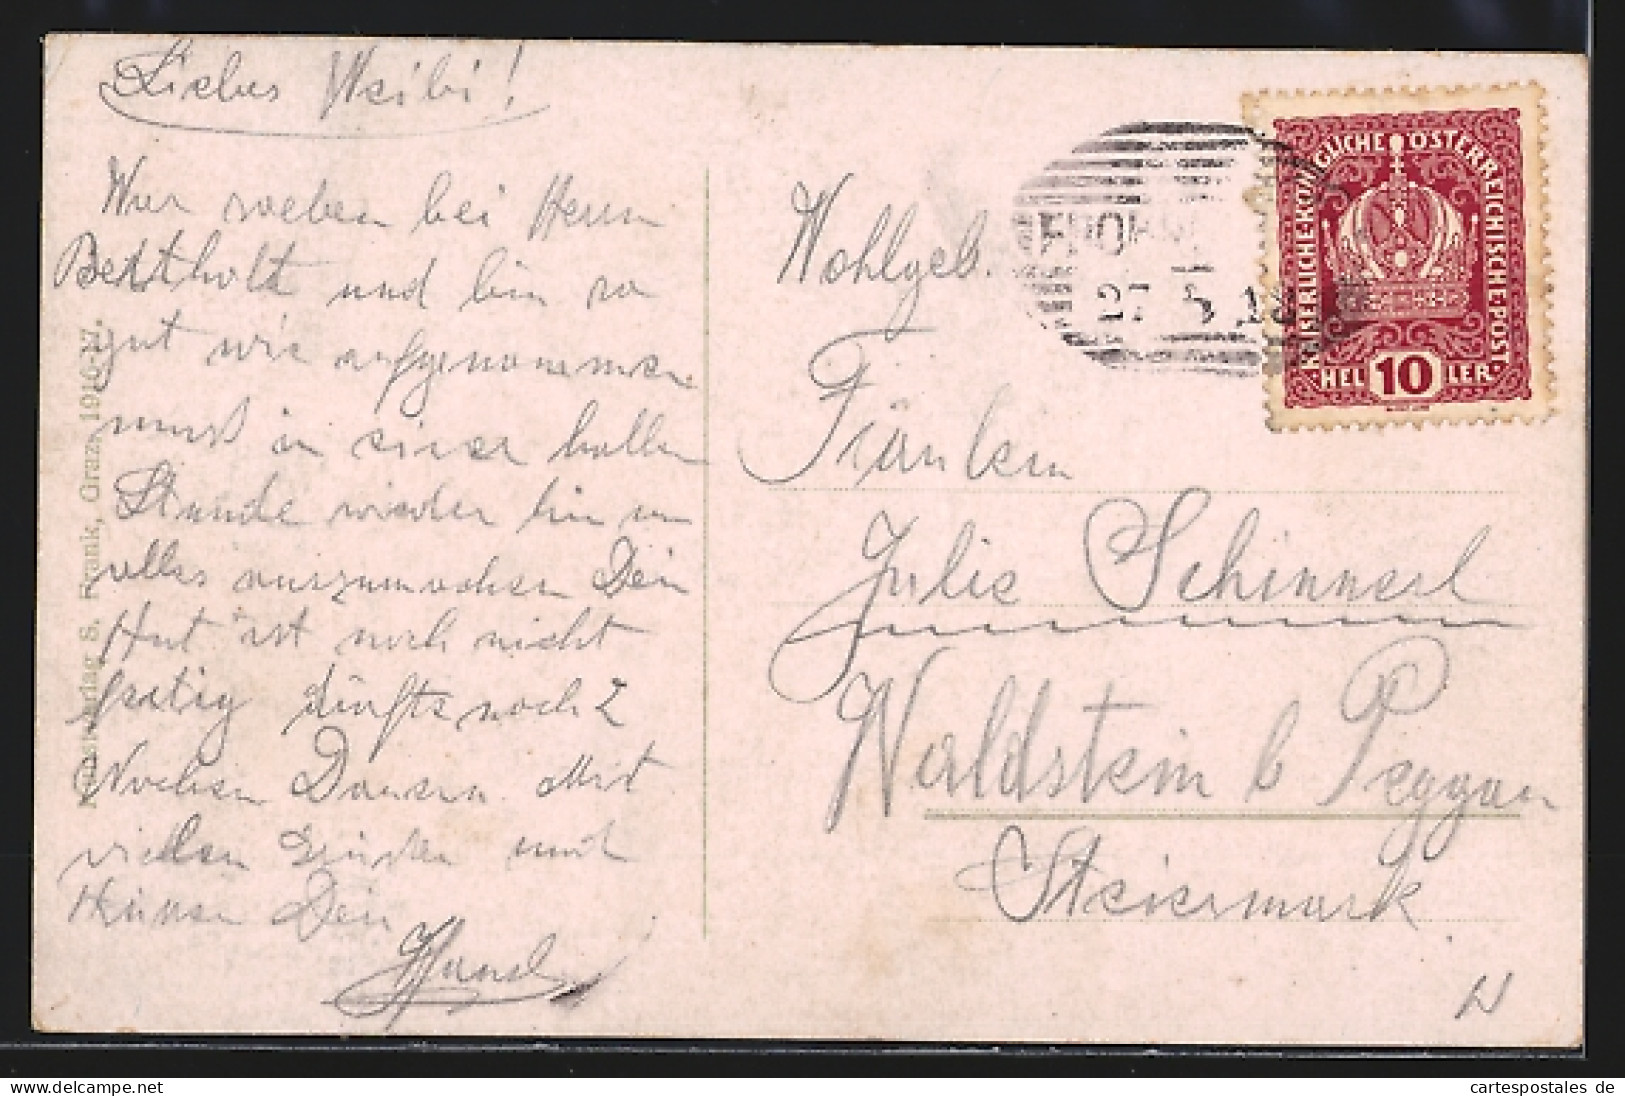 Liebes Weibi!
War soeben bei Herrn
Berthold und bin so
gut wie aufgenommen
muß in einer halben
Stunde wieder hin um
alles auszumachen Dein
Hut ist noch nicht
fertig dürfte noch 2
Wochen Dauern. Mit
vielen Grüßen und
Küssen Dein
Hansl
Kunstverlag S. Frank, Graz, 1916-17.
Wohlgeb.
Fräulein
Julie Schinnerl
Waldstein b Peggau
Steiermark
FROHN
27 5 18
KAISERLICHE·KÖNIGLICHE ÖSTERREICHISCHE·POST·
·HEL 10 LER·
cartespostales de